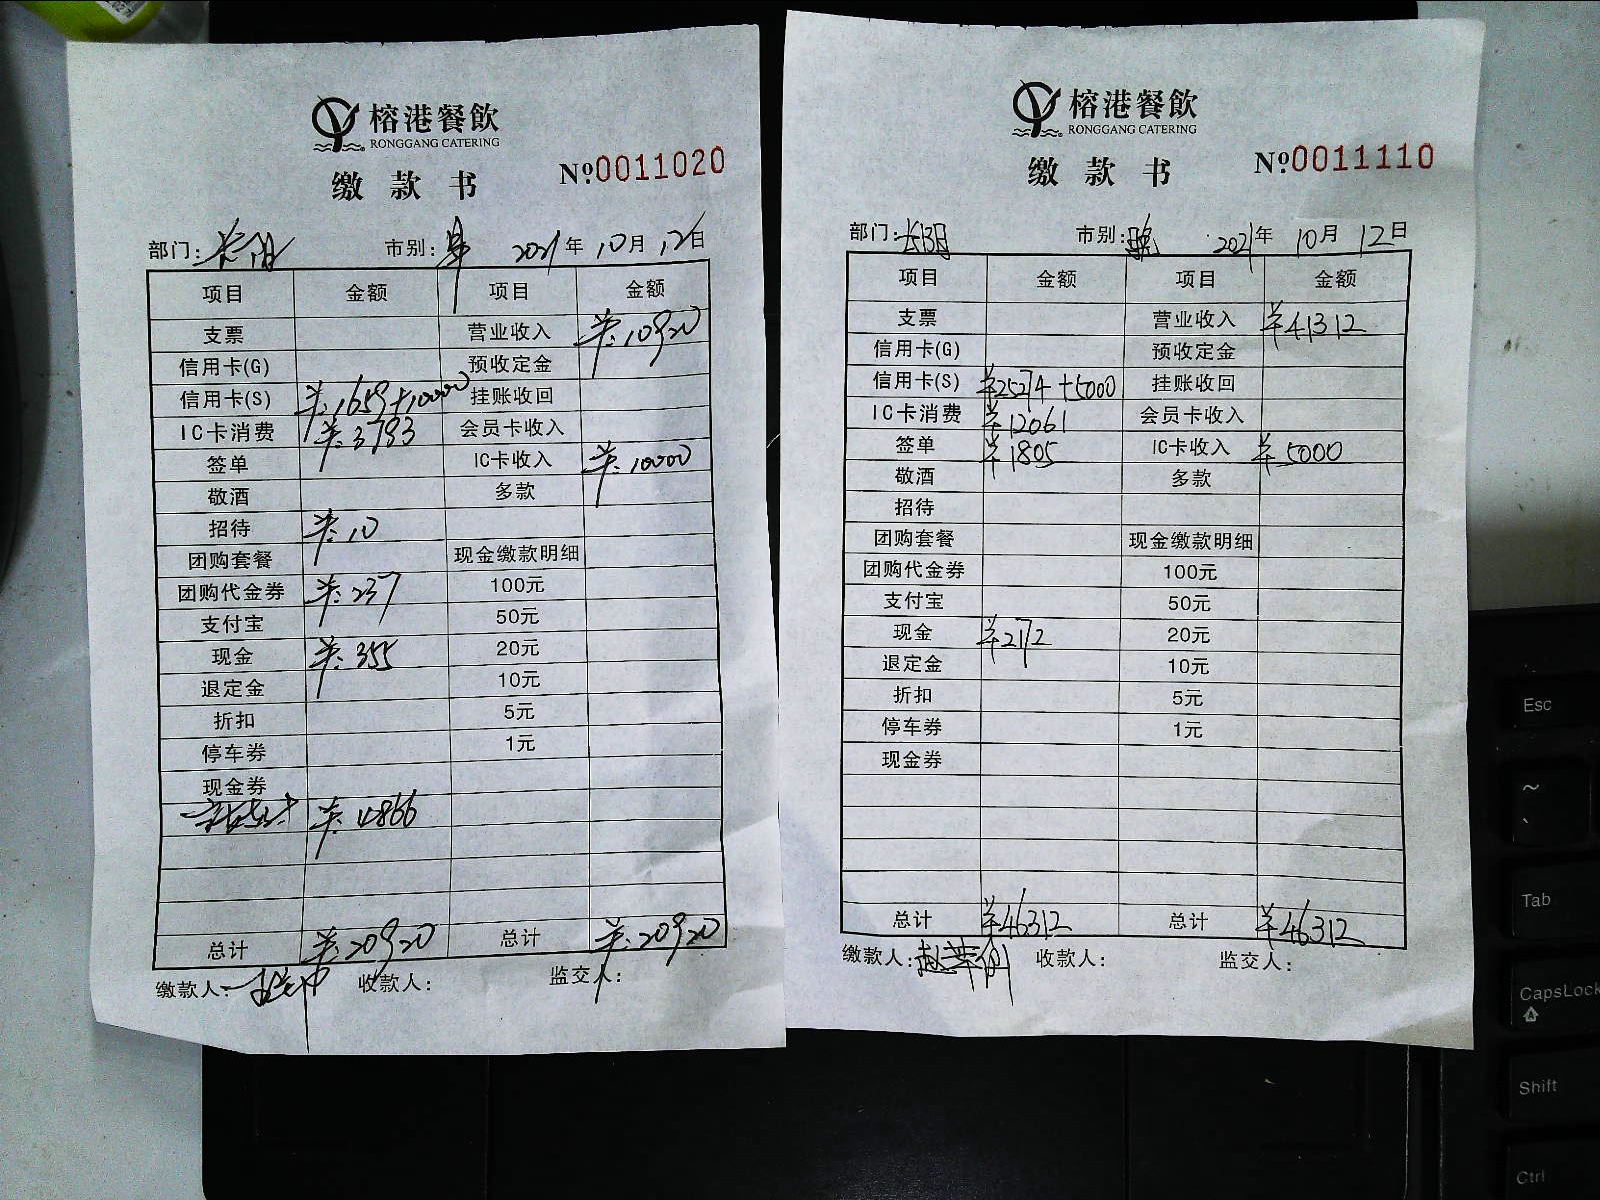 榕港餐飲
RONGGANG CATERING
缴款书 №0011020
部门: 市别: 2021年10月12日
项目 金额 项目 金额
支票 营业收入 ¥:10920
信用卡(G) 预收定金
信用卡(S) ¥:1659+10000 挂账收回
IC卡消费 ¥:3793 会员卡收入
签单 IC卡收入 ¥:10000
敬酒 多款
招待 ¥:10
团购套餐 现金缴款明细
团购代金券 ¥:237 100元
支付宝 50元
现金 ¥:355 20元
退定金 10元
折扣 5元
停车券 1元
现金券
¥:4866
总计 ¥:20920 总计 ¥:20920
缴款人: 收款人: 监交人:
榕港餐飲
RONGGANG CATERING
缴款书 №0011110
部门:长阳 市别:晚 2021年10月12日
项目 金额 项目 金额
支票 营业收入 ¥41312
信用卡(G) 预收定金
信用卡(S) ¥25274+5000 挂账收回
IC卡消费 ¥12061 会员卡收入
签单 ¥1805 IC卡收入 ¥5000
敬酒 多款
招待
团购套餐 现金缴款明细
团购代金券 100元
支付宝 50元
现金 ¥2172 20元
退定金 10元
折扣 5元
停车券 1元
现金券
总计 ¥46312 总计 ¥46312
缴款人: 收款人: 监交人:
Esc
~
Tab
CapsLock
Shift
Ctrl